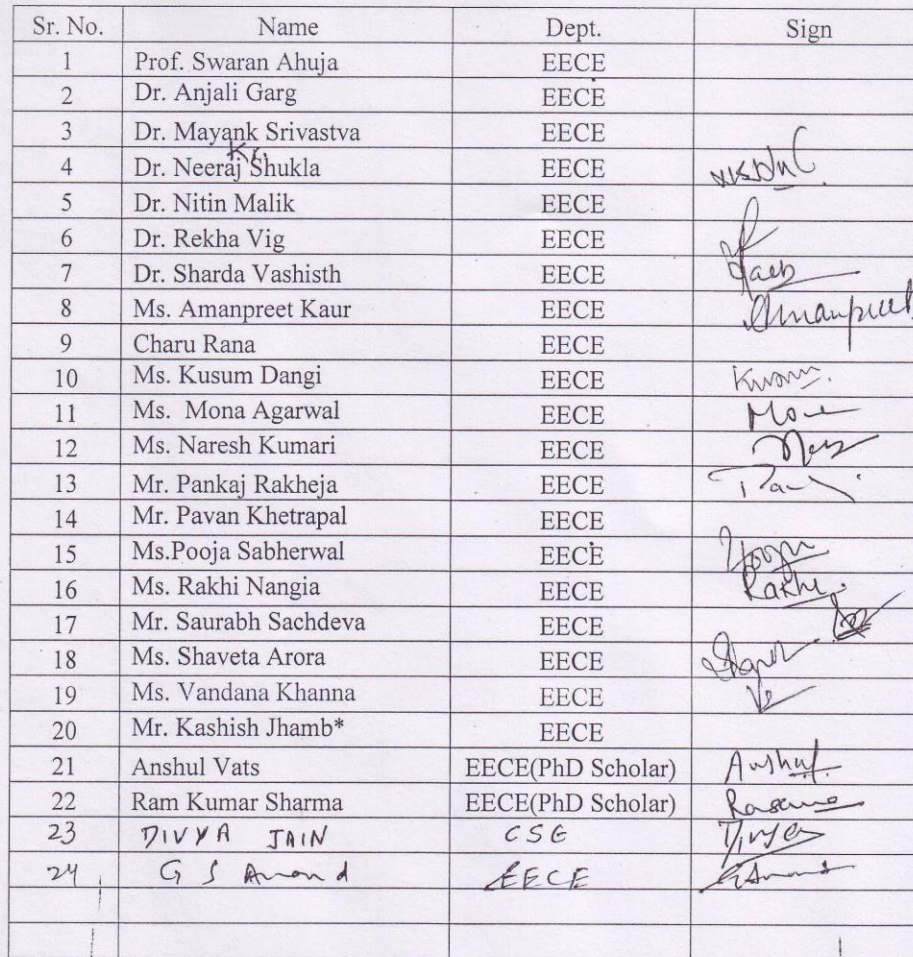 Sr. No. Name Dept. Sign
1 Prof. Swaran Ahuja EECE
2 Dr. Anjali Garg EECE
3 Dr. Mayank Srivastva EECE
Kr.
4 Dr. Neeraj Shukla EECE
5 Dr. Nitin Malik EECE
6 Dr. Rekha Vig EECE
7 Dr. Sharda Vashisth EECE
8 Ms. Amanpreet Kaur EECE Amanpreet
9 Charu Rana EECE
10 Ms. Kusum Dangi EECE Kusum
11 Ms. Mona Agarwal EECE Mona
12 Ms. Naresh Kumari EECE
13 Mr. Pankaj Rakheja EECE
14 Mr. Pavan Khetrapal EECE
15 Ms.Pooja Sabherwal EECE Pooja
16 Ms. Rakhi Nangia EECE Rakhi
17 Mr. Saurabh Sachdeva EECE
18 Ms. Shaveta Arora EECE
19 Ms. Vandana Khanna EECE
20 Mr. Kashish Jhamb* EECE
21 Anshul Vats EECE(PhD Scholar) Anshul
22 Ram Kumar Sharma EECE(PhD Scholar)
23 DIVYA JAIN CSE Divya
24 G S Anand EECE GSAnand